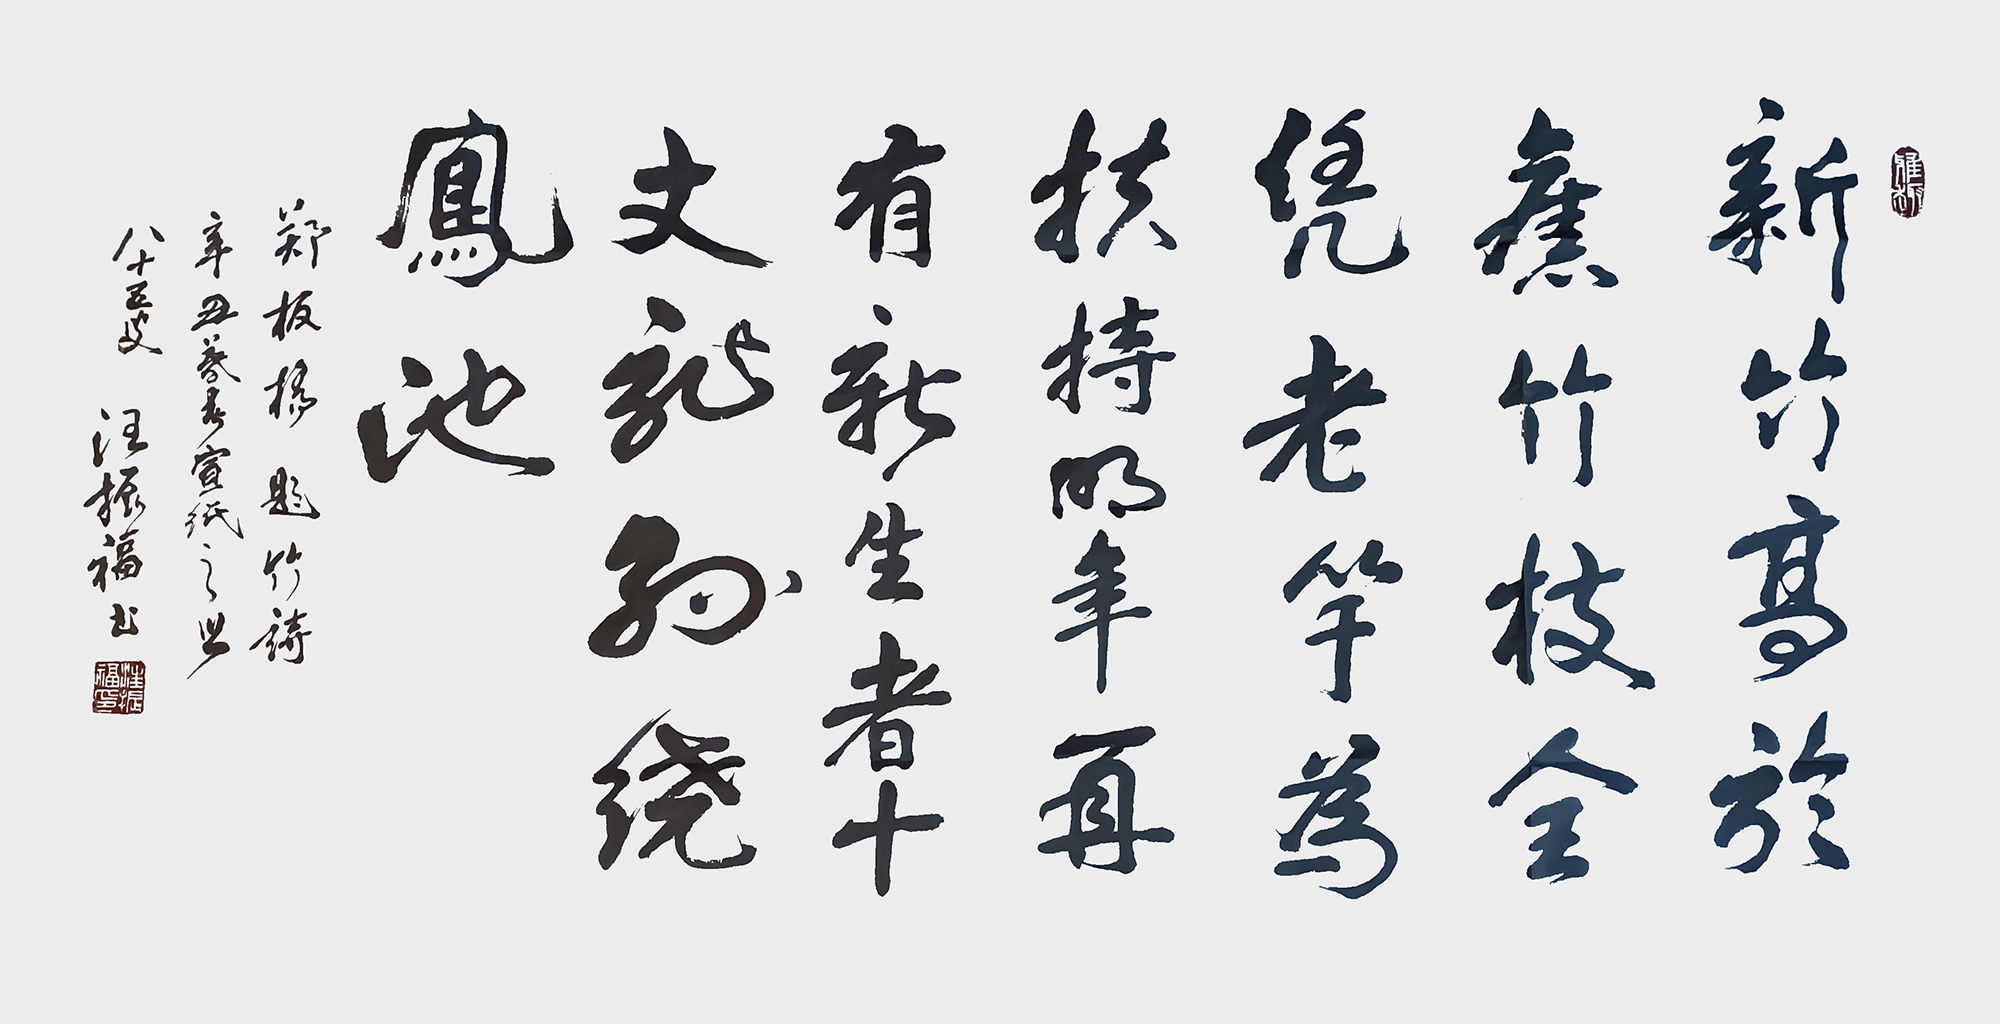 新竹高於
舊竹枝全
凭老竿為
扶持明年再
有新生者十
丈龍孫绕
鳳池
郑板橋題竹詩
辛丑暮春宣纸之
八十五叟 汪振福书
汪振福印